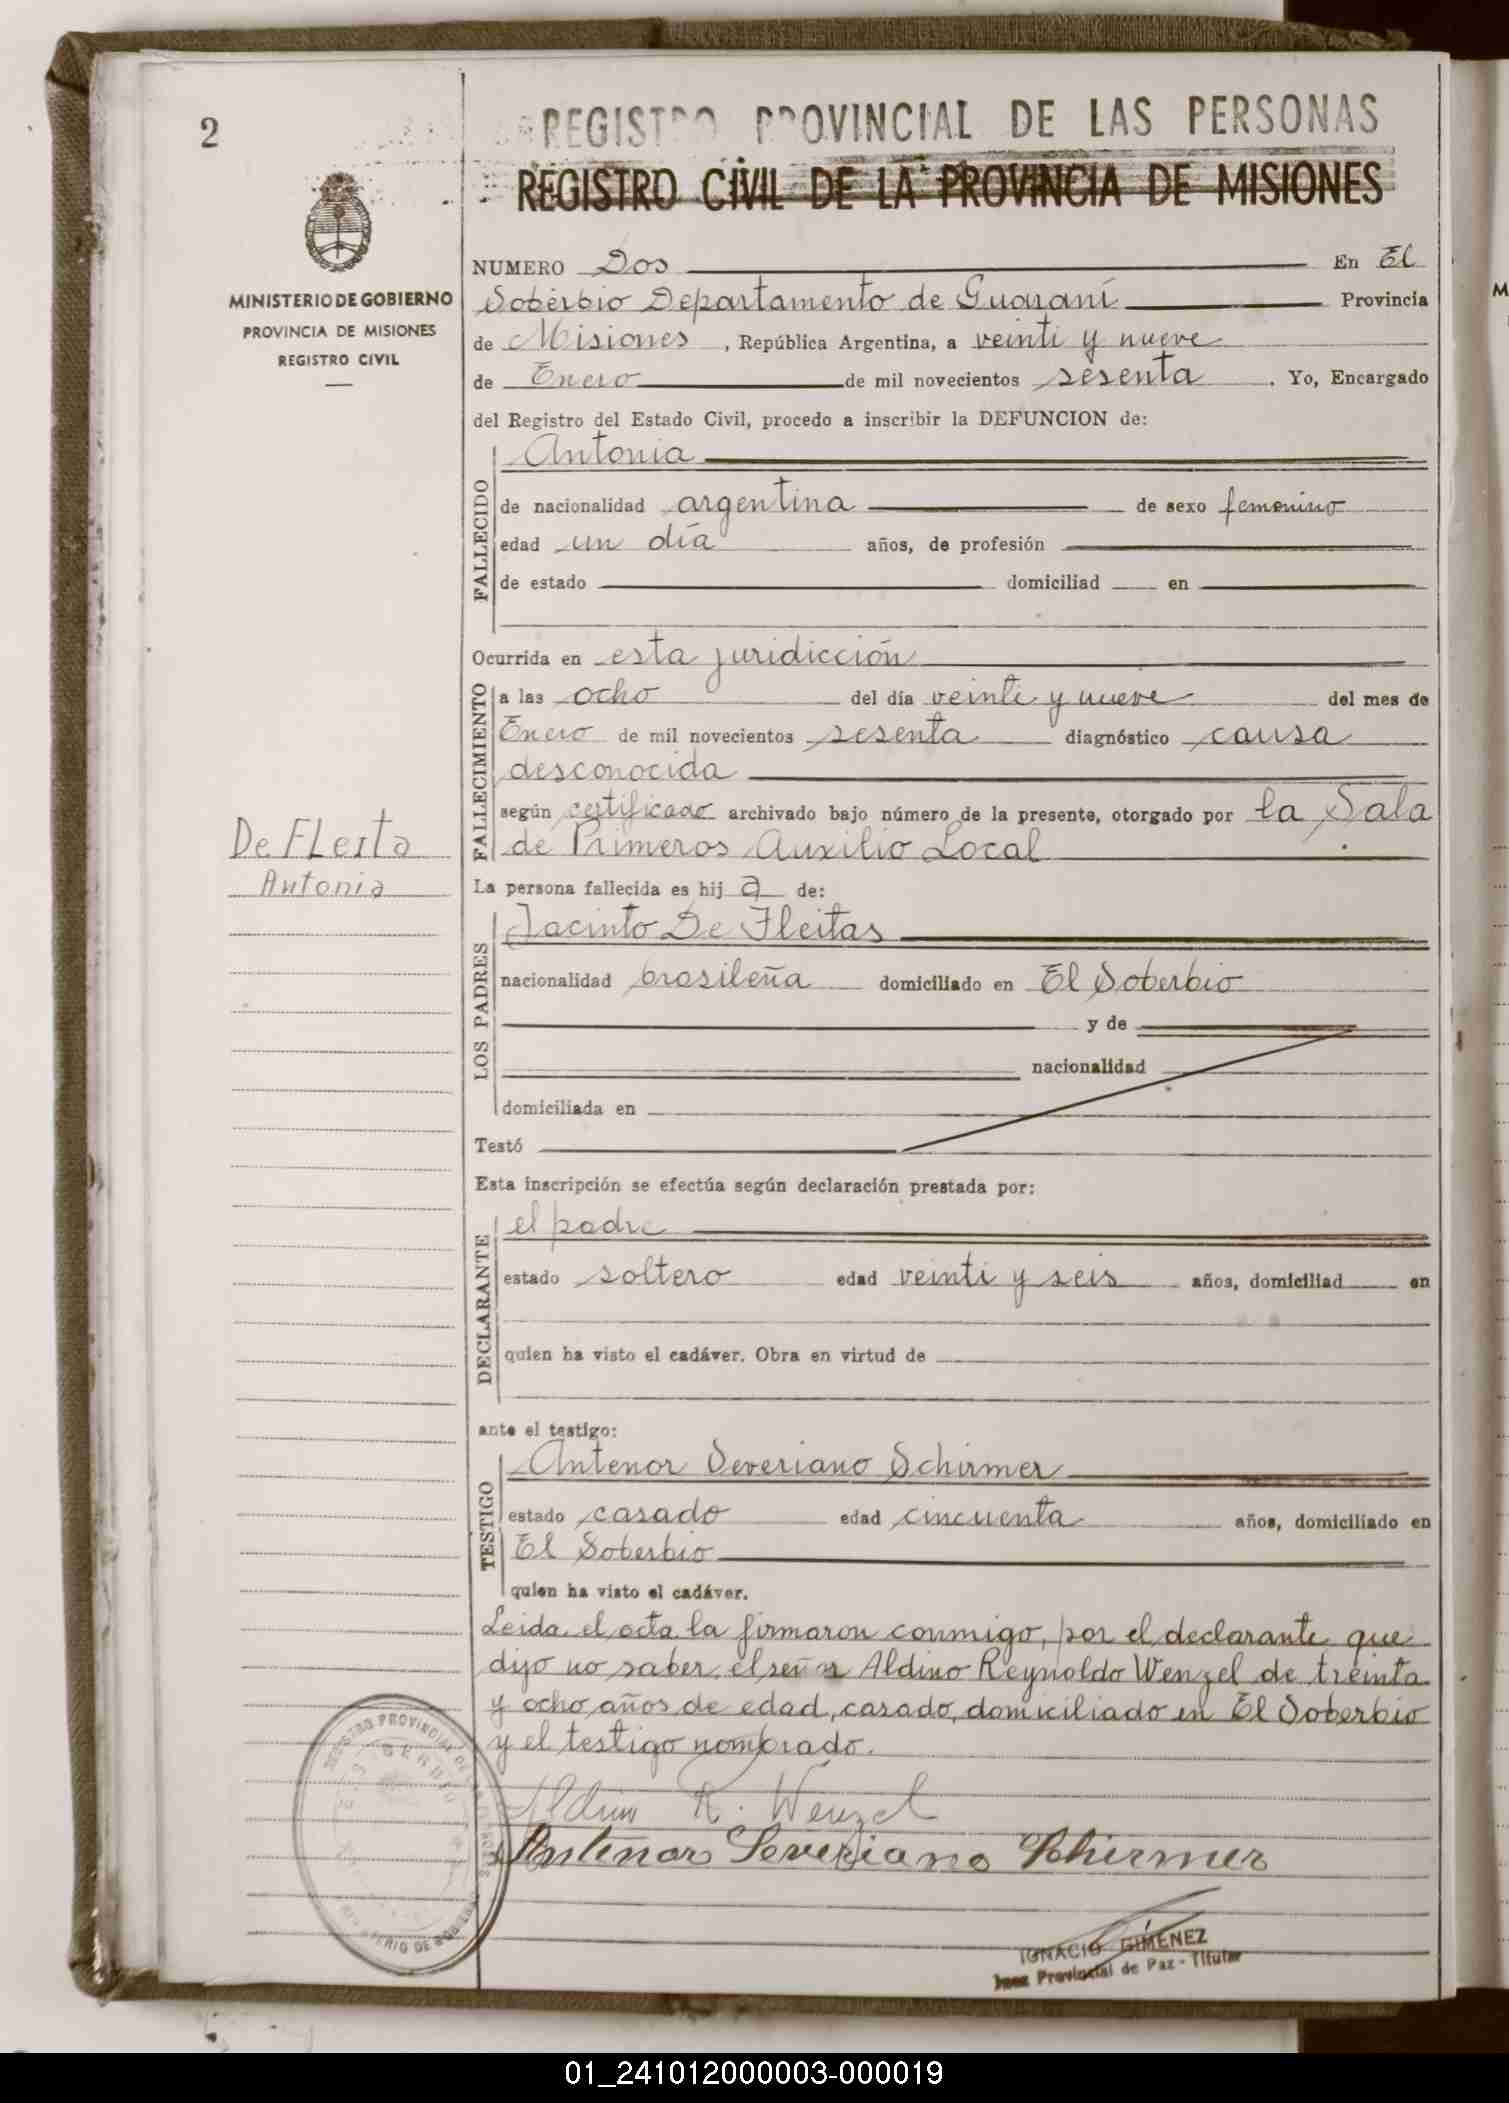 2
REGISTRO PROVINCIAL DE LAS PERSONAS
REGISTRO CIVIL DE LA PROVINCIA DE MISIONES
MINISTERIO DE GOBIERNO
PROVINCIA DE MISIONES
REGISTRO CIVIL
NUMERO Dos En El
Soberbio Departamento de Guaraní Provincia
de Misiones, República Argentina, a veinti y nueve
de Enero de mil novecientos sesenta. Yo, Encargado
del Registro del Estado Civil, procedo a inscribir la DEFUNCION de:
FALLECIDO
Antonia
de nacionalidad argentina de sexo femenino
edad un día años, de profesión
de estado domiciliad en
Ocurrida en esta juridicción
FALLECIMIENTO
a las ocho del día veinti y nueve del mes de
Enero de mil novecientos sesenta diagnóstico causa
desconocida
según certificado archivado bajo número de la presente, otorgado por la Sala
de Primeros Auxilio Local
De FLeita
Antonia
La persona fallecida es hija de:
LOS PADRES
Jacinto De Fleitas
nacionalidad brasileña domiciliado en El Soberbio
y de
nacionalidad
domiciliada en
Testó
Esta inscripción se efectúa según declaración prestada por:
DECLARANTE
el padre
estado soltero edad veinti y seis años, domiciliad en
quien ha visto el cadáver. Obra en virtud de
ante el testigo:
TESTIGO
Antenor Severiano Schirmer
estado casado edad cincuenta años, domiciliado en
El Soberbio
quien ha visto el cadáver.
Leida el acta la firmaron conmigo, por el declarante que
dijo no saber, el señor Aldino Reynoldo Wenzel de treinta
y ocho años de edad, casado, domiciliado en El Soberbio
y el testigo nombrado.
Aldino R. Wenzel
Antenor Severiano Schirmer
REGISTRO PROVINCIAL DE LAS PERSONAS
MINISTERIO DE GOBIERNO
IGNACIO GIMENEZ
Juez Provincial de Paz - Titular
01_241012000003-000019